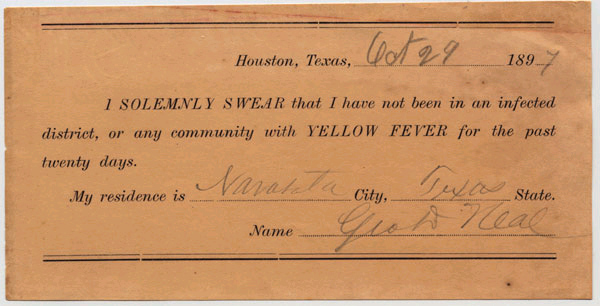 Houston, Texas, Oct 29 1897
I SOLEMNLY SWEAR that I have not been in an infected
district, or any community with YELLOW FEVER for the past
twenty days.
My residence is Navasota City, Texas State.
Name Geo D Neal